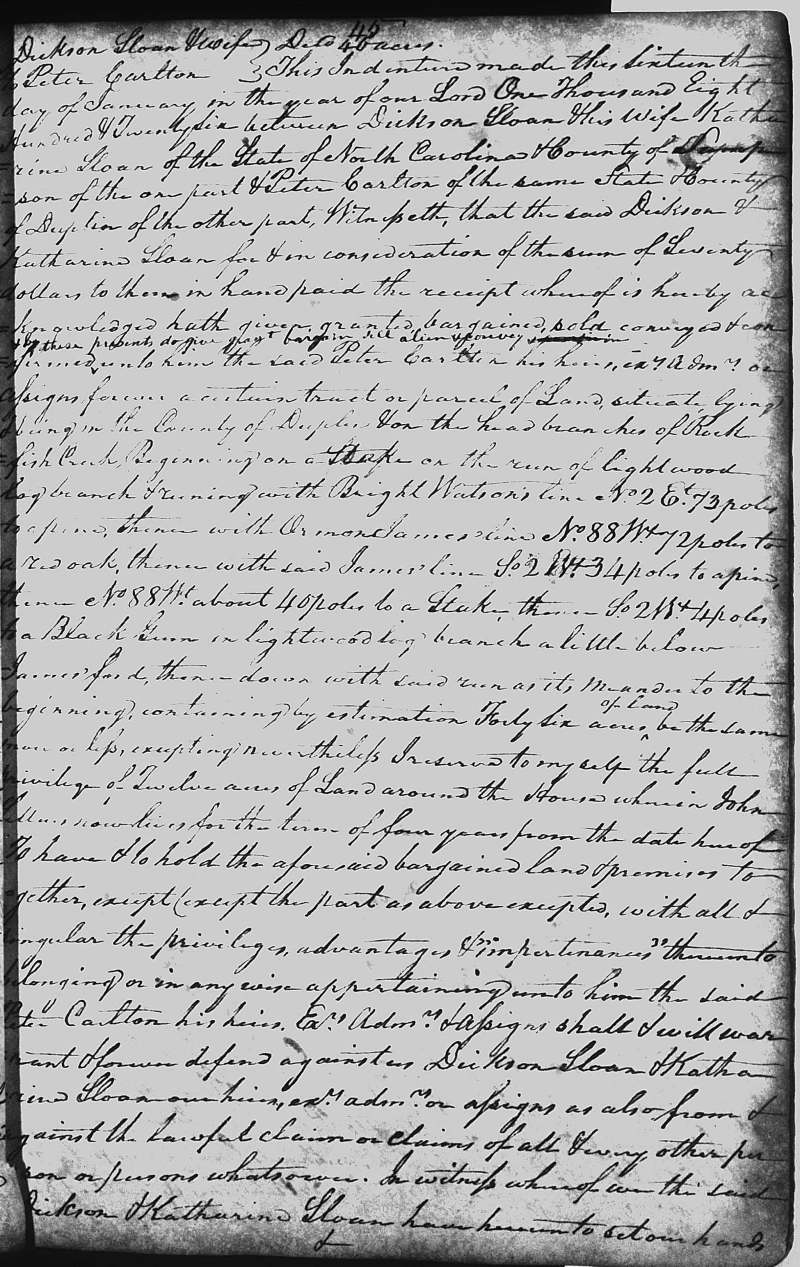 Dickson Sloan & wife } Deed 46 acres. 45
To Peter Carlton } This Indenture made this Sixteenth
day of January in the year of our Lord One Thousand Eight
Hundred & Twenty six between Dickson Sloan & his Wife Katha
=rine Sloan of the State of North Carolina & County of
=son of the one part & Peter Carlton of the same State & County
of Duplin of the other part, Witnesseth, that the said Dickson &
Katharine Sloan for & in consideration of the sum of Seventy
dollars to them in hand paid the receipt whereof is hereby ac
=knowledged hath given, granted, bargained, sold conveyed & con
& by these presents do give grant bargain sell alien & convey
=firmed, unto him the said Peter Carlton his heirs, exrs Admrs or
assigns forever a certain tract or parcel of Land, situate lying
& being in the County of Duplin & on the head branches of Rock
=fish Creek, Beginning on a Stake on the run of lightwood
log branch & runing with Bright Watson's line No. 2 Et. 73 poles
to a pine, thence with Ormon James' line No. 88 Wt 72 poles to
a red oak, thence with said James' line So. 2 Wt. 34 poles to a pine,
thence No. 88 Wt. about 40 poles to a Stake, thence So. 2 Wt 4 poles
to a Black Gum in lightwood log branch a little below
James' ford, thence down with said run as its meander to the
of Land
beginning, containing by estimation Forty six acres ^ be the same
more or less, excepting nevertheless I reserve to myself the full
privilege of Twelve acres of Land around the House wherein John
now lives for the term of four years from the date hereof
To have & to hold the aforesaid bargained land & premises to
gether, except (except the part as above excepted, with all &
singular the privileges, advantages & "impertinances" thereunto
belonging or in any wise appertaining unto him the said
Peter Carlton his heirs, Exrs Admrs & Assigns shall & will war
rant & forever defend against us Dickson Sloan & Katha
rine Sloan our heirs, exrs admrs or assigns as also from &
against the lawful claim or claims of all & every other per
son or persons whatsoever. In witness whereof we the said
Dickson & Katharine Sloan have hereunto set our hands
&